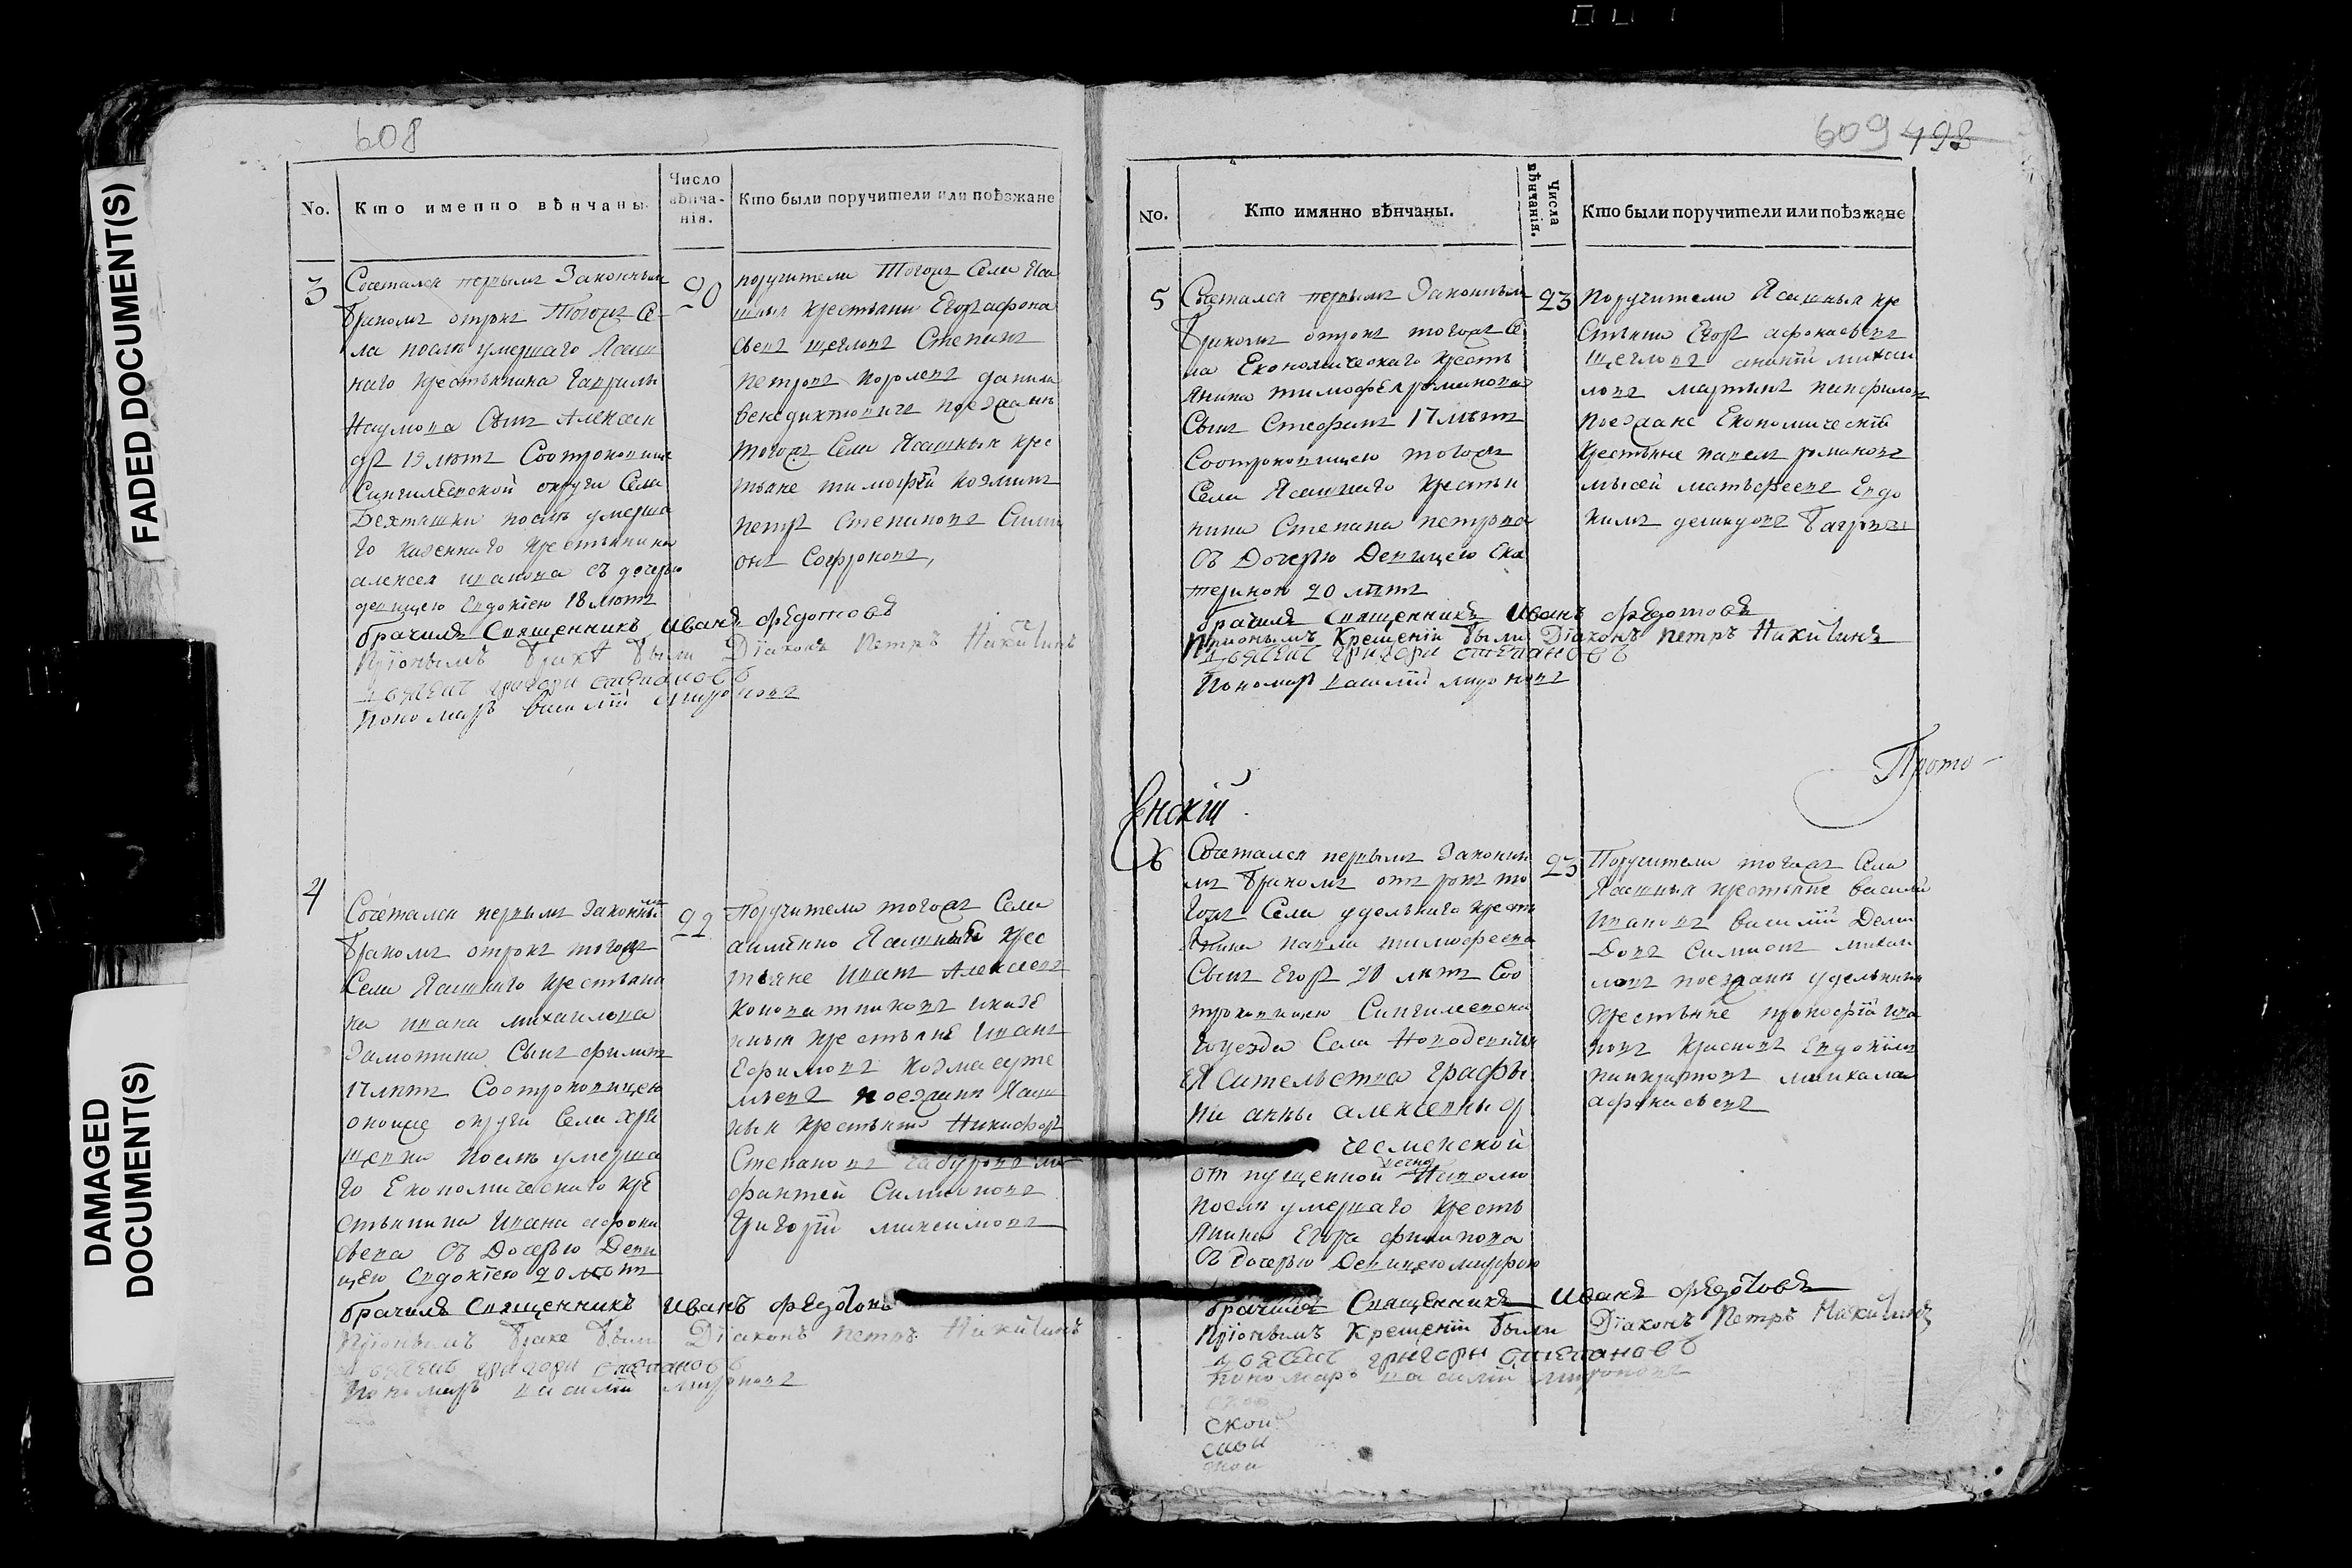 FADED DOCUMENT(S)
DAMAGED
DOCUMENT(S)
608
No.
Кто именно вѣнчаны.
Число
вѣнча-
нія.
Кто были поручители или поѣзжане
3
Сочетался первымъ Законнымъ
бракомъ отрокъ Тогожъ Се-
ла послѣ умершаго Ясаш
наго крестьянина Гаврилы
Наумова Сынъ Алексан
дръ 19 лѣтъ Соотроковице
Сингилеевской округи Села
Бектяшки послѣ умерша
го казеннаго крестьянина
алексея иванова съ дочерью
девицею Евдокіею 18 лѣтъ
20
поручители Тогожъ Села Яса
шныя крестьяни Егоръ афона
сьевъ щегловъ Степанъ
петровъ королевъ данила
венедиктовичъ поезжанъ
тогожъ Села Ясашныя крес
тьяне тимофѣй козминъ
петръ Степановъ Сими
онъ Софроновъ,
брачилъ Священникъ Иванъ Федотовъ
Приономъ бракѣ были Діаконъ Петръ Никитинъ
григори степановъ
Пономаръ василій мироновъ
4
Сочетался первымъ законнымъ
бракомъ отрокъ тогожъ
Села Ясашнаго крестьяни
на ивана михаилова
Замотина Сынъ филипъ
17 лѣтъ Соотроковицею
оноиже округи Села хря
щевки послѣ умерша
го Економическаго кре
стьянина Ивана афона
сьева Съ Дочерью Деви
цею евдокіею 20 лѣтъ
22
Поручители тогожъ Села
аименно Ясашныя крес
тьяне Иванъ Алексеевъ
коноватниковъ иказе
нныя крестьяне Иванъ
Ефимовъ козма
поезжани Ясаш
ныя крестьяни Никифоръ
Степановъ
Симионовъ
Григорій максимовъ
брачилъ Священникъ Иванъ Федотовъ
Приономъ браке были Діаконъ Петръ Никитинъ
григори степановъ
Пономаръ василій мироновъ
609 498
No.
Кто имянно вѣнчаны.
Числа
вѣнчанія.
Кто были поручители или поѣзжане
5
Сочетался первымъ Законнымъ
бракомъ отрокъ тогожъ Се
ла Економическаго кресть
янина тимофея романова
Сынъ Стефанъ 17 лѣтъ
Соотроковицею тогожъ
Села Ясашнаго крестья
нина Степана петрова
Съ Дочерью Девицею Ека
териною 20 лѣтъ
23
Поручители Ясашныя кре
стьяни Егоръ афонасьевъ
щегловъ михаи
ловъ мартынъ панфиловъ
Поезжане Економическія
крестьяне павелъ романовъ
мысей матьфеевъ Евдо
кимъ
брачилъ Священникъ Иванъ Федотовъ
Приономъ Крещеніи были Діаконъ Петръ Никитинъ
григори степановъ
Пономаръ василій мироновъ
Прото-
енскій
6
Сочетался первымъ Законны
мъ бракомъ отрокъ то
гожъ Села удельнаго крест
янина павла тимофеева
Сынъ Егоръ 20 лѣтъ Соо
троковицею Сингилеевска
го уезда Села Новодевичья
Ея Сиятельства графы
ни анны алексевны
чесменской
отпущенной вечно
послѣ умершаго кресть
янина Егора филипова
Съ дочерью Девицею
23
Поручители тогожъ Села
Ясашныя крестьяне василей
Ивановъ василій Деми
довъ Симионъ михаи
ловъ поезжанѣ удельныя
крестьяне прокофій ива
новъ красновъ Евдокимъ
афонасьевъ
брачилъ Священникъ Иванъ Федотовъ
Приономъ Крещеніи были Діаконъ Петръ Никитинъ
григори степановъ
Пономаръ василій мироновъ
ской